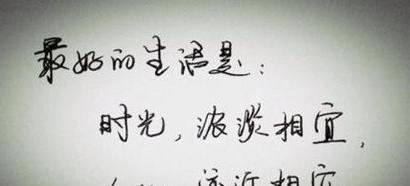 最好的生活是：
时光，浓淡相宜，
远近相安